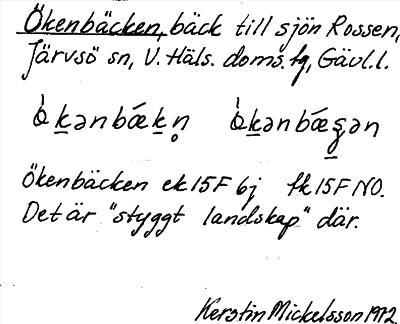 Ökenbäcken, bäck till sjön Rossen,
Järvsö sn, V. Häls. doms. tg, Gävl. l.
Ökenbäcken ek 15F 6j fk 15F NO.
Det är "styggt landskap" där.
Kerstin Mickelsson 1972.